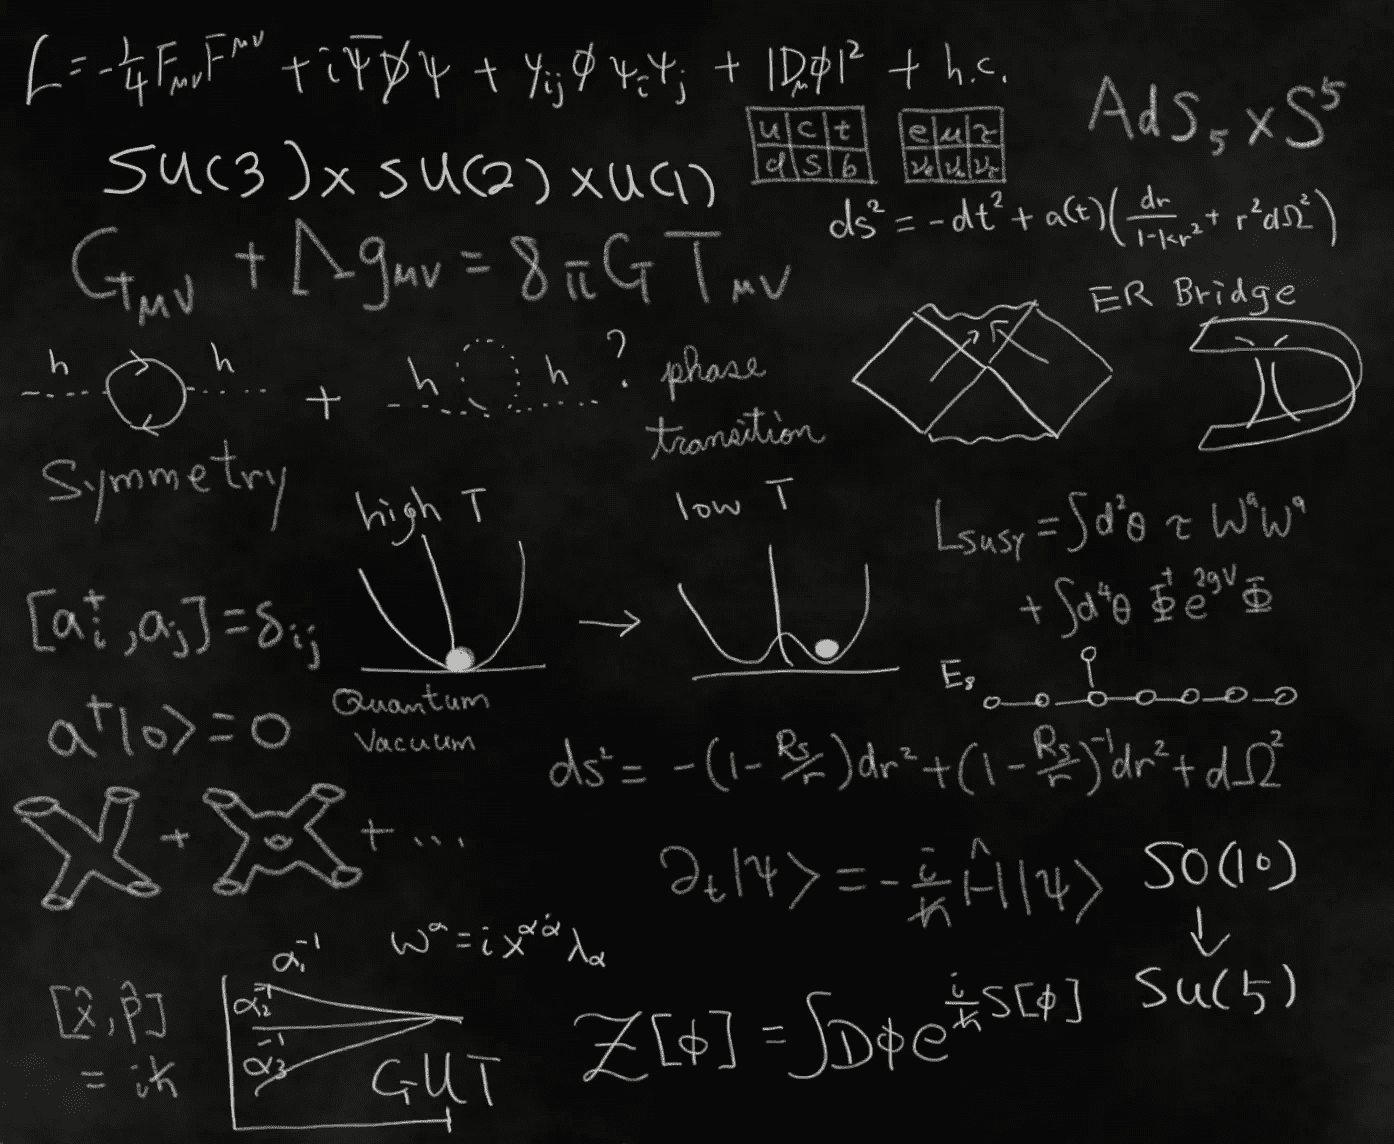 L = -1/4 F_μν F^μν + i Ψ̄ D̸ ψ + y_ij ϕ ψ_i ψ_j + |D_μ ϕ|² + h.c.
u c t
d s b
e μ τ
ν_e ν_μ ν_τ
AdS_5 x S^5
SU(3) x SU(2) x U(1)
ds² = -dt² + a(t)(dr/1-kr² + r²dΩ²)
G_μν + Λg_μν = 8πG T_μν
ER Bridge
h h + h h ?
phase
transition
Symmetry
high T
low T
L_SUSY = ∫d²θ τ W^a W^a
+ ∫d⁴θ Φ† e^2gV Φ
[a_i^†, a_j] = δ_ij
E_8
Quantum
Vacuum
a†|0> = 0
ds² = -(1 - R_s/r)dr² + (1 - R_s/r)^-1 dr² + dΩ²
+ + ...
∂_t|ψ> = -i/ħ Ĥ|ψ>
SO(10)
↓
SU(5)
w^α = i x^αα̇ λ_α
[x̂, p̂]
= iħ
α_1^-1
α_2^-1
α_3^-1
GUT
Z[ϕ] = ∫Dϕ e^i/ħ S[ϕ]